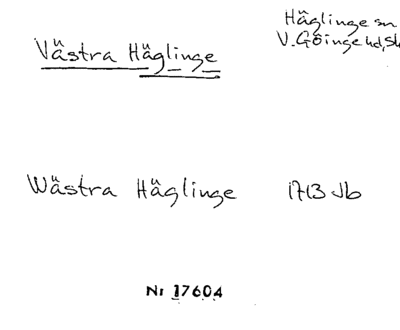 Västra Häglinge
Häglinge sn
V. Göinge hd, Sk
Wästra Häglinge 1713 Jb
Nr 17604